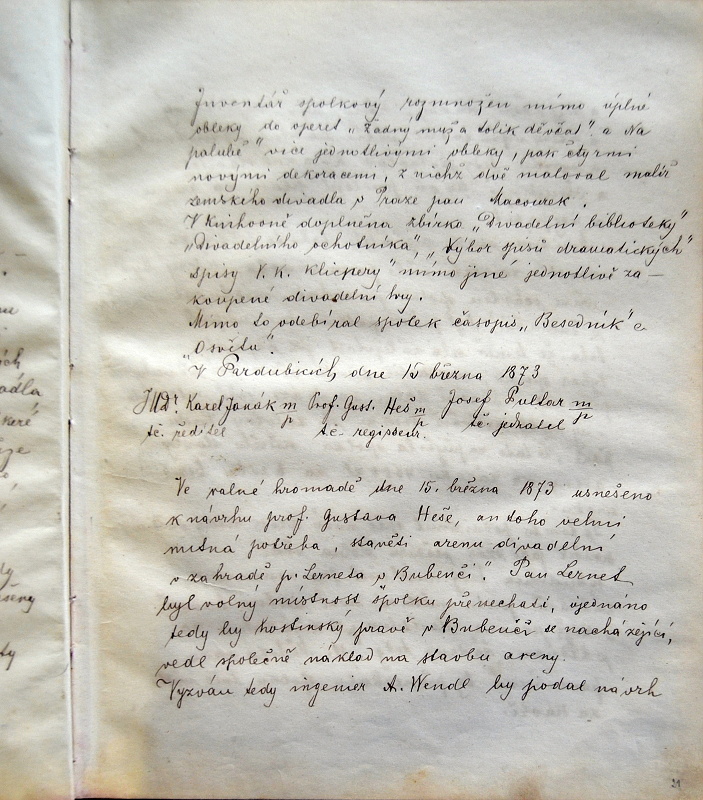 Inventář spolkový rozmnožen mimo úplné
obleky do operet „Žádný muž a tolik děvčat" a Na
palubě" více jednotlivými obleky, pak čtyrmi
novými dekoracemi, z nichž dvě maloval malíř
zemského divadla v Praze pan Macourek.
V Knihovně doplněna sbírka „Divadelní biblioteky"
„Divadelního ochotníka", „Výbor spisů dramatických"
spisy V. K. Klicpery" mimo jiné jednotlivě za-
koupené divadelní hry.
Mimo to odebíral spolek časopis „Besedník" a
„Osvěta".
V Pardubicích dne 15 března 1873
JUDr. Karel Janák m/p Prof. Gust. Heš m/p Josef Pultar m/p
tč. ředitel tč. regisseur. tč. jednatel
Ve valné hromadě dne 15. března 1873 usnešeno
k návrhu prof. Gustava Heše, an toho velmi
nutná potřeba, stavěti arenu divadelní
v zahradě p. Lerneta v Bubenči". Pan Lernet
byl volný místnost spolku přenechati, ujednáno
tedy by hostinský právě v Bubenči se nacházející,
vedl společně náklad na stavbu areny.
Vyzván tedy ingenier A. Wendl by podal návrh